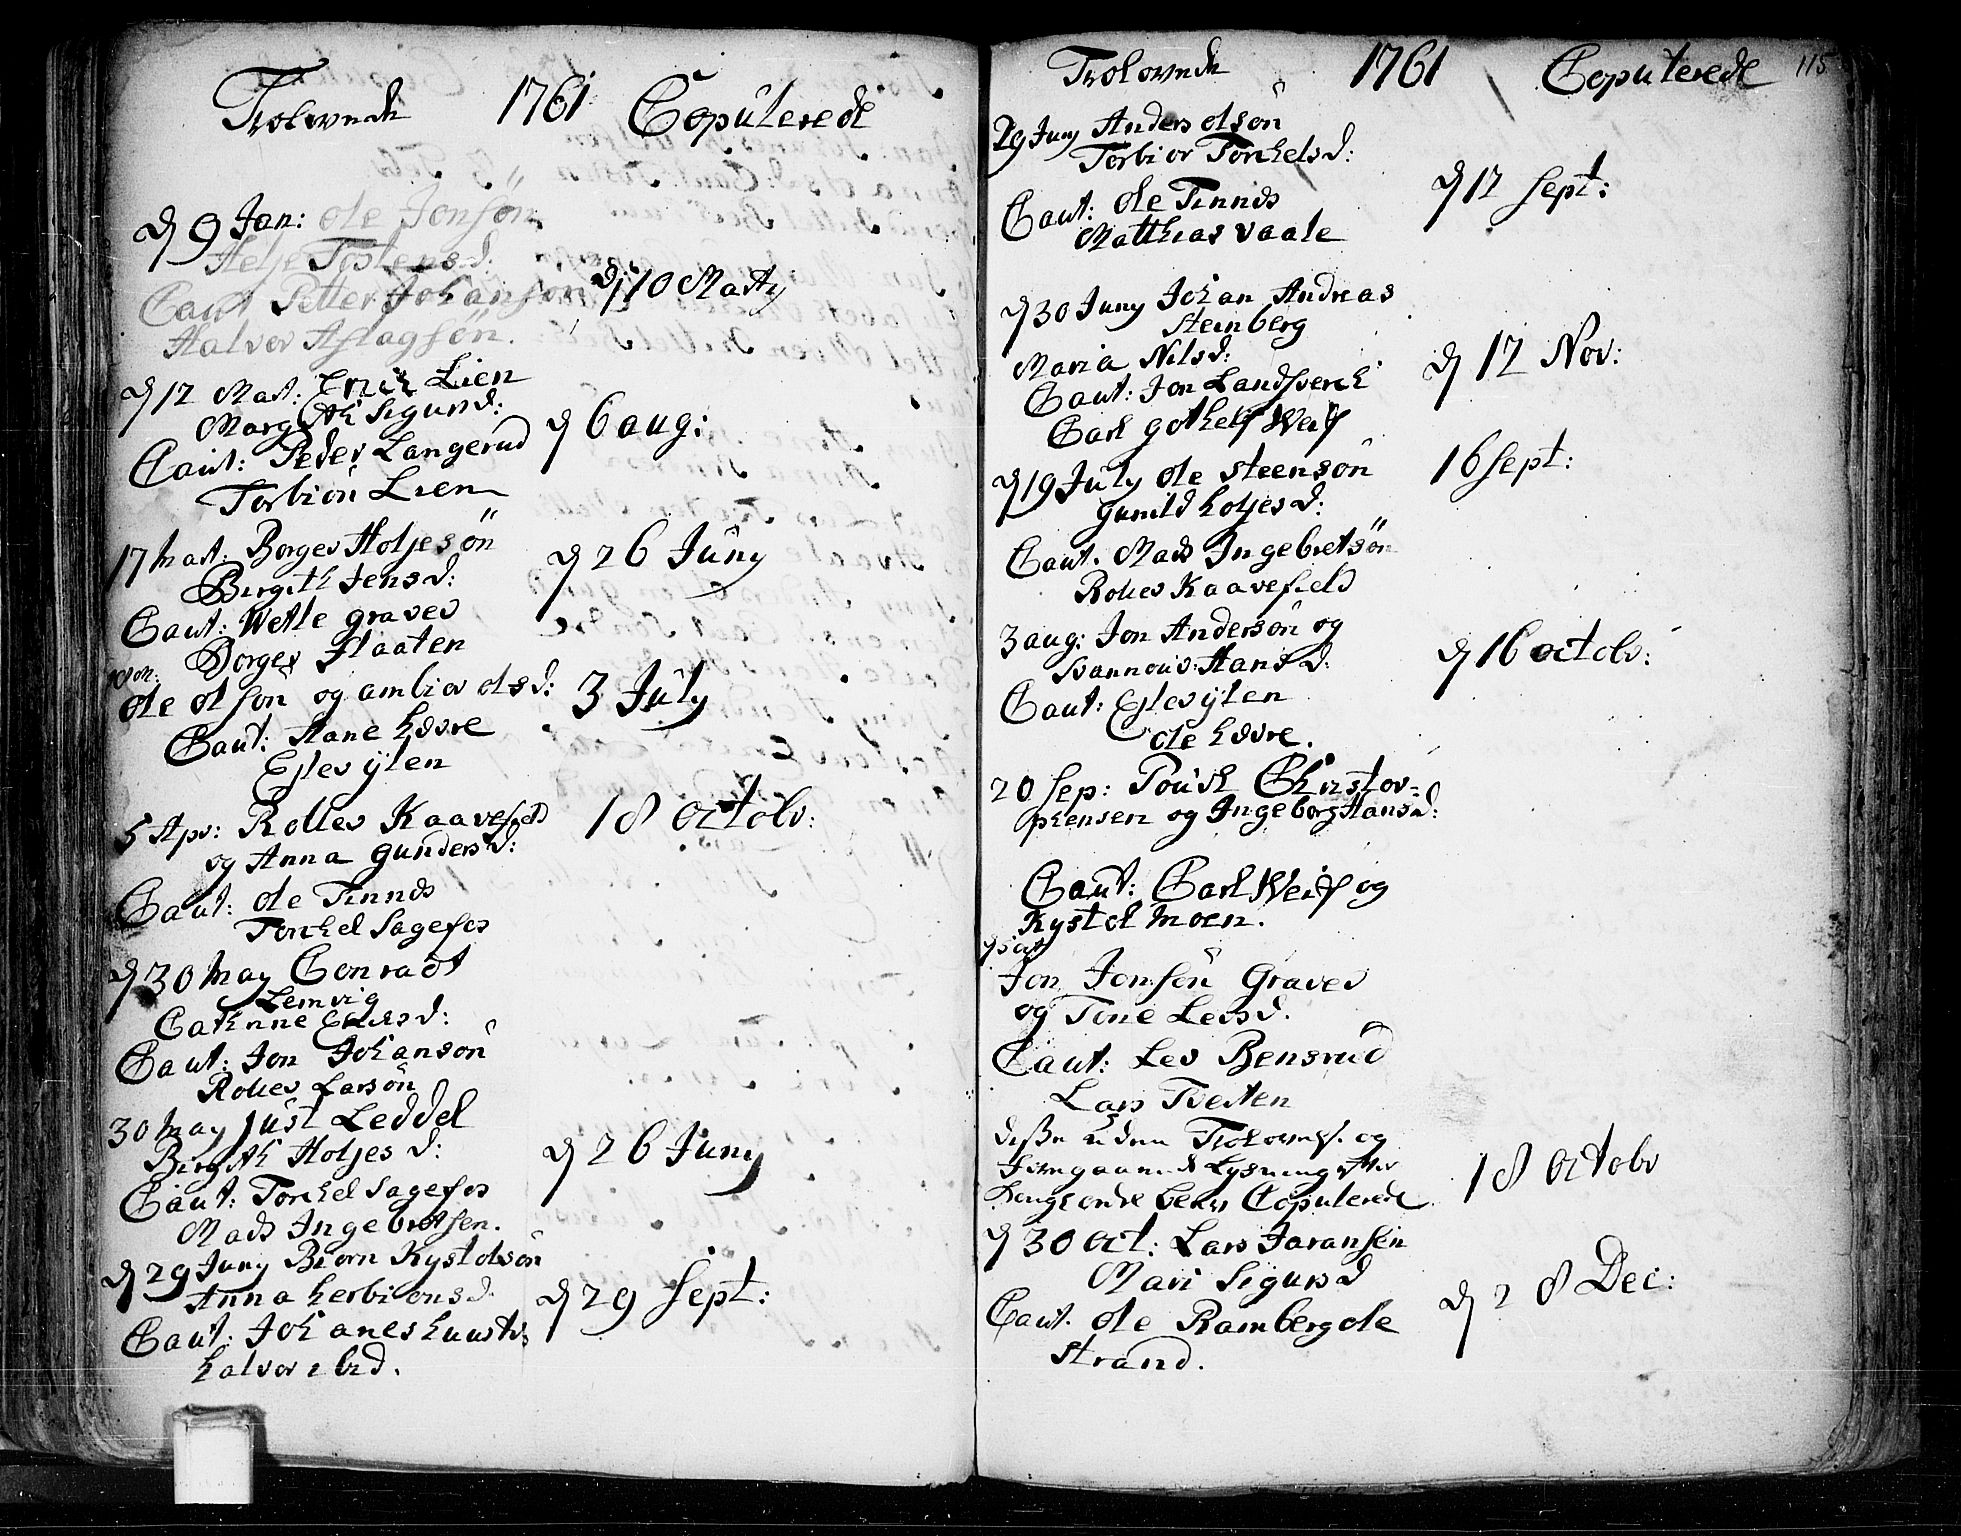 Trolovede 1761 Copulerede
d 9 Jan: Ole Jonsön
Helje Tostensd:
Caut Petter Johanson d 10 Marty
Halvor Aslagsön.
d 12 Mart: Erich Lien
Margith Sigursd: d 6 aug:
Caut: Peder Langerud
Torbiön Lien
17 Mart: Borger Holjesön
Birgith Jensd: d 26 Juny
Caut: Wetle graver
Borger Flaaten
Ole Olsön og ambior Olsd: 3 July
Caut: Hane
Eslev ÿlen
5 Apr: Rolles Kaavefield 18 octobr:
og Anna gundersd:
Caut: Ole Tinnes
Torchel Sagefos
d 30 May Conradt
Lemvig
Catrine
Caut: Jon Johanson
Rolles Larsön
30 May Just Leddel
Birgith Holjesd: d 26 Juny
Caut: Torchel Sagefos
Mads Ingebretsen.
d 29 Juny Biorn Kystolsön
Anna herbionsd. d 29 Sept:
Caut: Johanes
halvor ibid.
Trolovede 1761 Copulerede 115
29 Juny Anders Olsön
Torbior Torkelsd:
Caut: Ole Tinnes d 17 Sept:
Matthias Vaale
d 30 Juny Johan Andreas
Steinberg
Maria Nilsd: d 12 Nov:
Caut: Jon Landsverch
Carl gothelf Weif
d 19 July Ole Steensön 16 Sept:
gunild holjesd:
Caut. Mads Ingebretsön
Rolles Kaavefield
3 aug: Jon Andersön og
Hansd: d 16 octobr:
Caut: Eslev ÿlen
Ole
20 Sep: Poúel Christov=
phensen og Ingeborg Hansd:
Caut: Carl Weif og
Kystel Moen.
Jon Jonsön Graver
og Tone Leesd.
Caut: Les Bensrud
Lars Tveiten
disse uden Trolovels. og
Lysning efter
18 octobr
Copulerede
d 30 oct: Lars Joransen
Mari Sigursd
Caut. Ole Ramberg Ole d 28 Dec:
Strand.